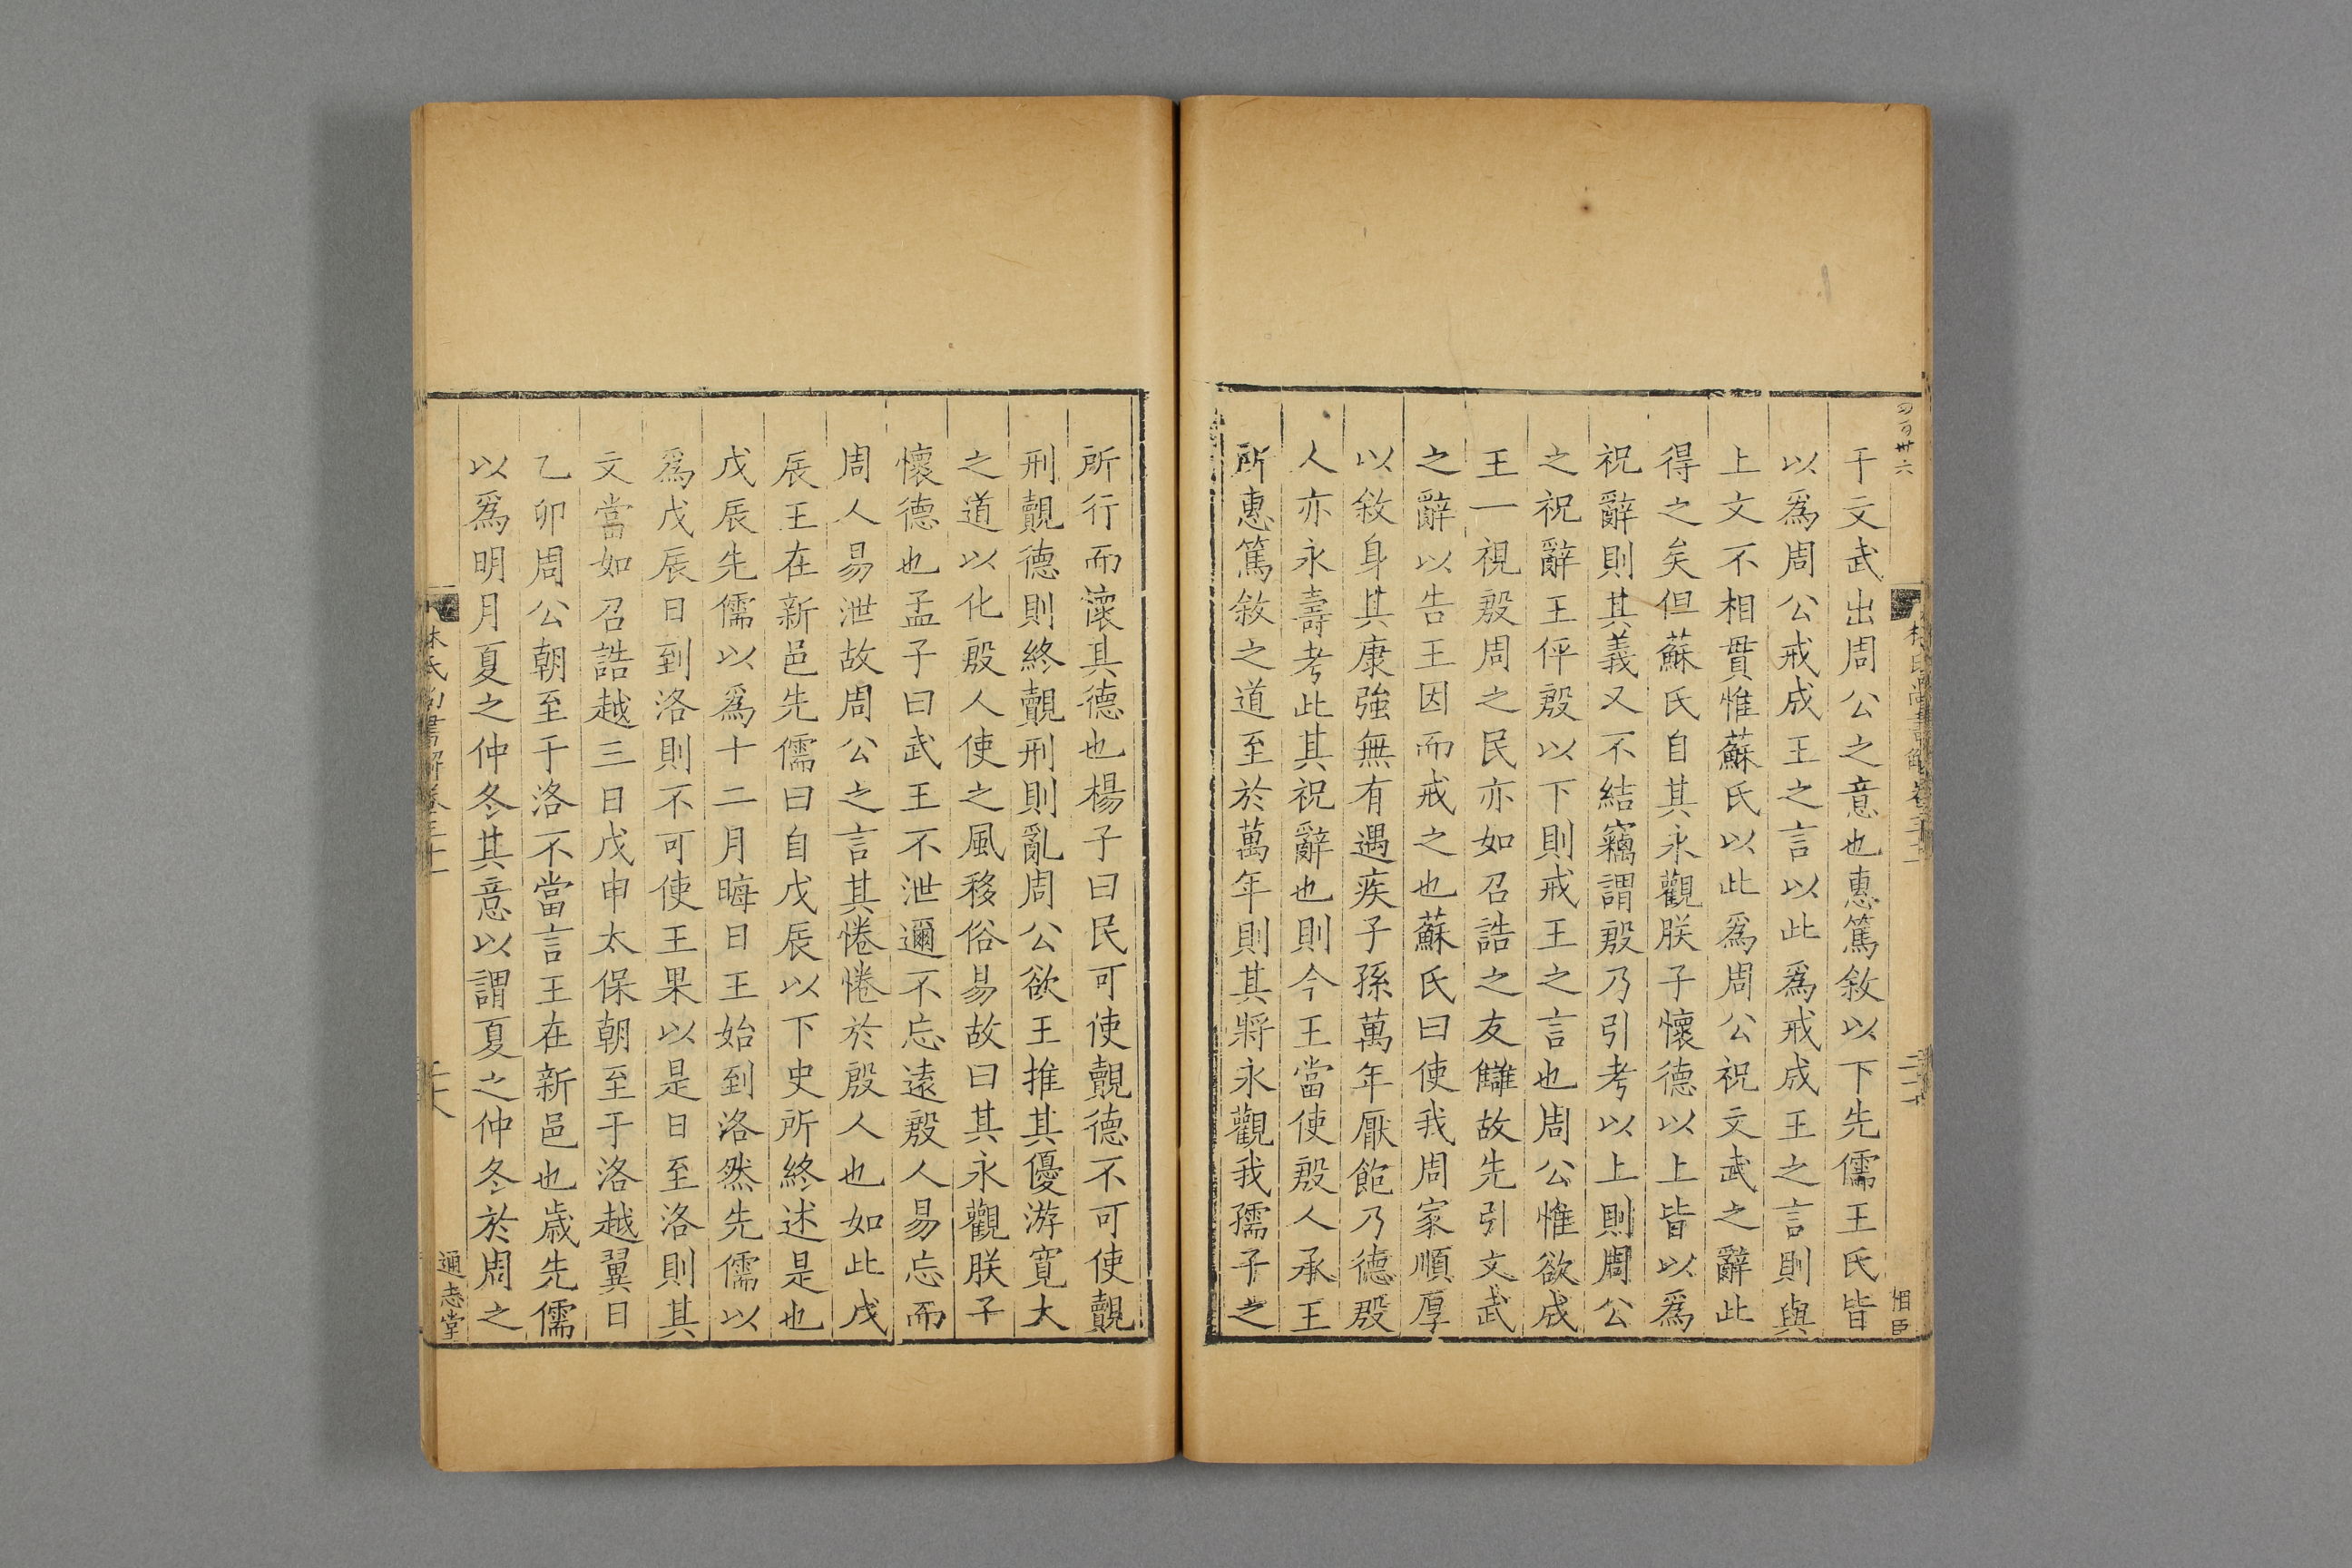 于文武出周公之意也惠篤敘以下先儒王氏皆
以爲周公戒成王之言以此爲戒成王之言則與
上文不相貫惟蘇氏以此爲周公祝文武之辭此
得之矣但蘇氏自其永觀朕子懷德以上皆以爲
祝辭則其義又不結竊謂殷乃引考以上則周公
之祝辭王伻殷以下則戒王之言也周公惟欲成
王一視殷周之民亦如召誥之友讎故先引文武
之辭以告王因而戒之也蘇氏曰使我周家順厚
以敘身其康強無有遇疾子孫萬年厭飽乃德殷
人亦永壽考此其祝辭也則今王當使殷人承王
所惠篤敘之道至於萬年則其將永觀我孺子之
所行而瀼其德也楊子曰民可使覿德不可使覿
刑覿德則終覿刑則亂周公欲王推其優游寬大
之道以化殷人使之風移俗易故曰其永觀朕子
懷德也孟子曰武王不泄邇不忘遠殷人易忘而
周人易泄故周公之言其惓惓於殷人也如此戊
辰王在新邑先儒曰自戊辰以下史所終述是也
戊辰先儒以爲十二月晦日王始到洛然先儒以
爲戊辰日到洛則不可使王果以是日至洛則其
文當如召誥越三日戊申太保朝至于洛越翼日
乙卯周公朝至于洛不當言王在新邑也歲先儒
以爲明月夏之仲冬其意以謂夏之仲冬於周之
林氏尚書解卷三十一
通志堂